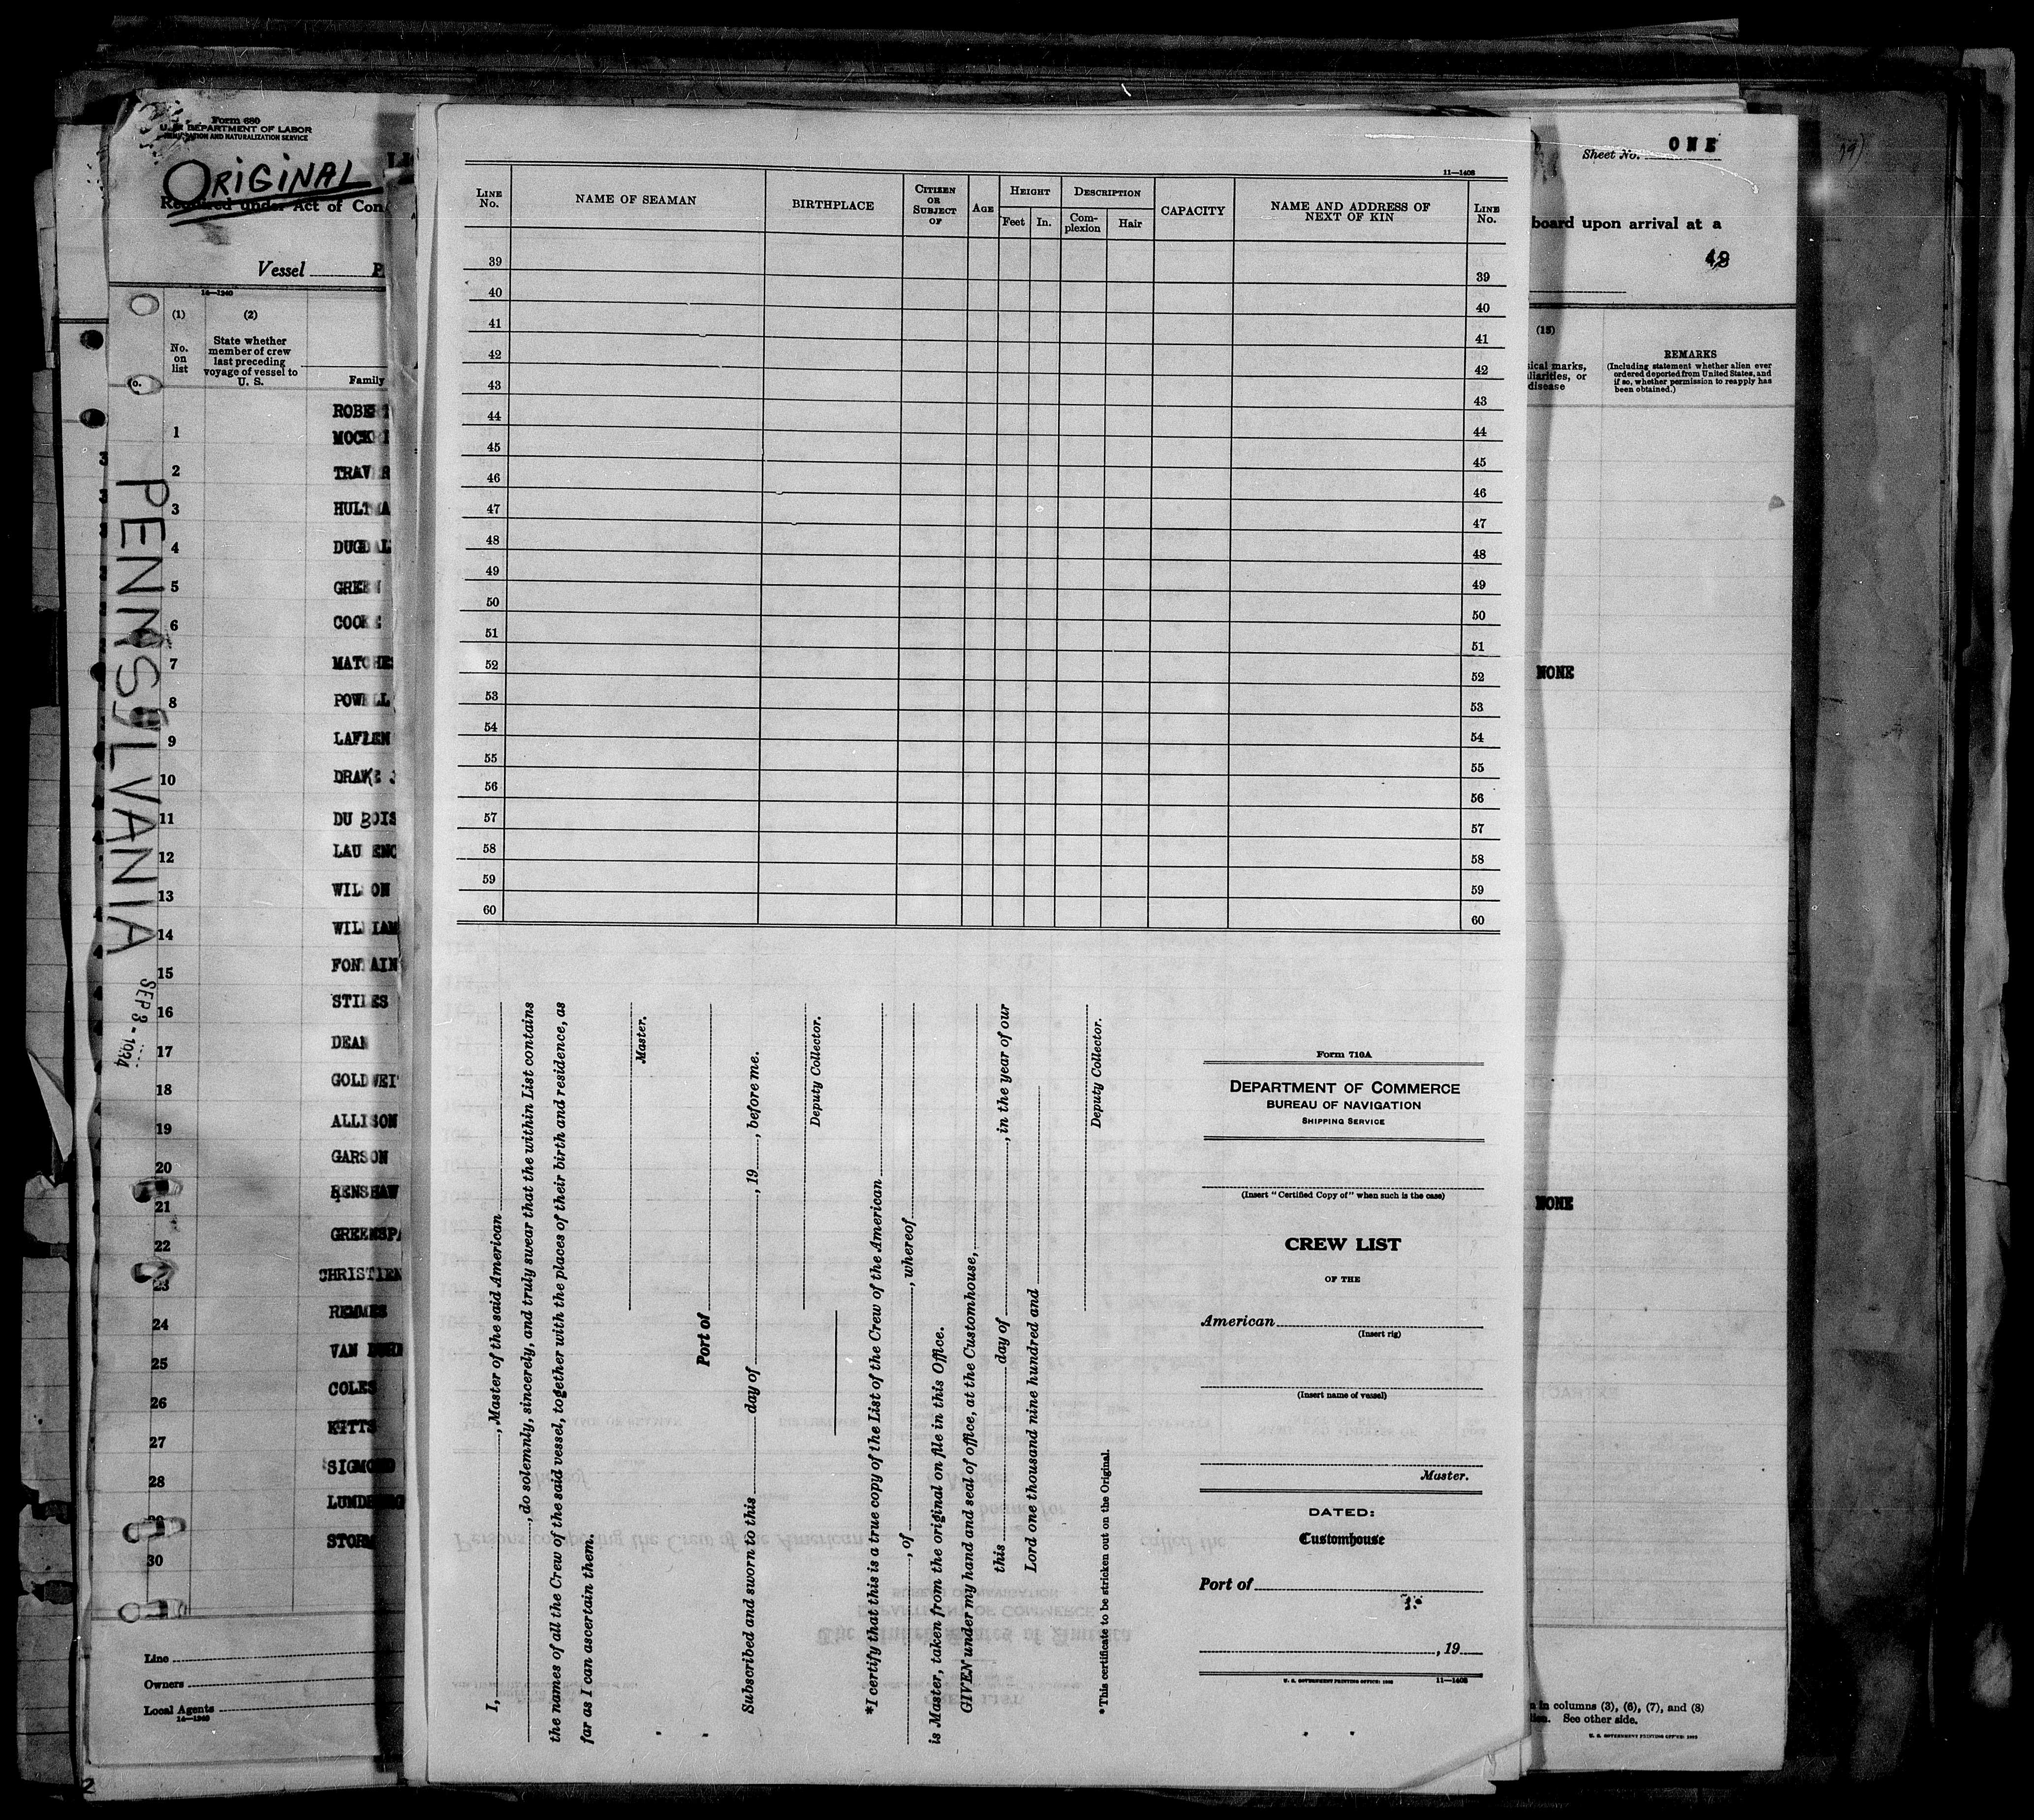 Form 680
U. S. DEPARTMENT OF LABOR
IMMIGRATION AND NATURALIZATION SERVICE
ORIGINAL
Required under Act of Con
Vessel
14—1940
(1)
(2)
No. on list
State whether member of crew last preceding voyage of vessel to U. S.
Family
ROBERT
1 MOCK
2 TRAV R
3 HULTMA
4 DUGDAL
5 GREEN
6 COOKE
7 MATCHES
8 POWELL
9 LAFLEN
10 DRAKE J
11 DU BOIS
12 LAU ENC
13 WIL ON
14 WIL IAM
15 FONTAIN
16 STILES
17 DEAN
18 GOLDWEI
19 ALLISON
20 GARSON
21 RENSHAW
22 GREENSPA
23 CHRISTIEN
24 REMMES
25 VAN
26 COLES
27 KITTS
28 SIGMOND
LUND
30 STORM
PENNSYLVANIA
SEP 3 - 1934
Line
Owners
Local Agents
14—1940
2
11—1408
LINE No.
NAME OF SEAMAN
BIRTHPLACE
CITIZEN OR SUBJECT OF
AGE
HEIGHT
Feet
In.
DESCRIPTION
Complexion
Hair
CAPACITY
NAME AND ADDRESS OF NEXT OF KIN
LINE No.
39 39
40 40
41 41
42 42
43 43
44 44
45 45
46 46
47 47
48 48
49 49
50 50
51 51
52 52
53 53
54 54
55 55
56 56
57 57
58 58
59 59
60 60
I, , Master of the said American
, do solemnly, sincerely, and truly swear that the within List contains
the names of all the Crew of the said vessel, together with the places of their birth and residence, as
far as I can ascertain them.
Master.
Port of
Subscribed and sworn to this day of , 19 , before me.
Deputy Collector.
*I certify that this is a true copy of the List of the Crew of the American
, of , whereof
is Master, taken from the original on file in this Office.
GIVEN under my hand and seal of office, at the Customhouse,
this day of , in the year of our
Lord one thousand nine hundred and
Deputy Collector.
*This certificate to be stricken out on the Original.
Form 710A
DEPARTMENT OF COMMERCE
BUREAU OF NAVIGATION
SHIPPING SERVICE
(Insert "Certified Copy of" when such is the case)
CREW LIST
OF THE
American
(Insert rig)
(Insert name of vessel)
Master.
DATED:
Customhouse
Port of
, 19
U. S. GOVERNMENT PRINTING OFFICE: 11—1408
Sheet No. ONE
board upon arrival at a
(15)
ical marks,
liarities, or
disease
REMARKS
(Including statement whether alien ever
ordered deported from United States, and
if so, whether permission to reapply has
been obtained.)
NONE
NONE
in columns (3), (6), (7), and (8)
See other side.
U. S. GOVERNMENT PRINTING OFFICE: